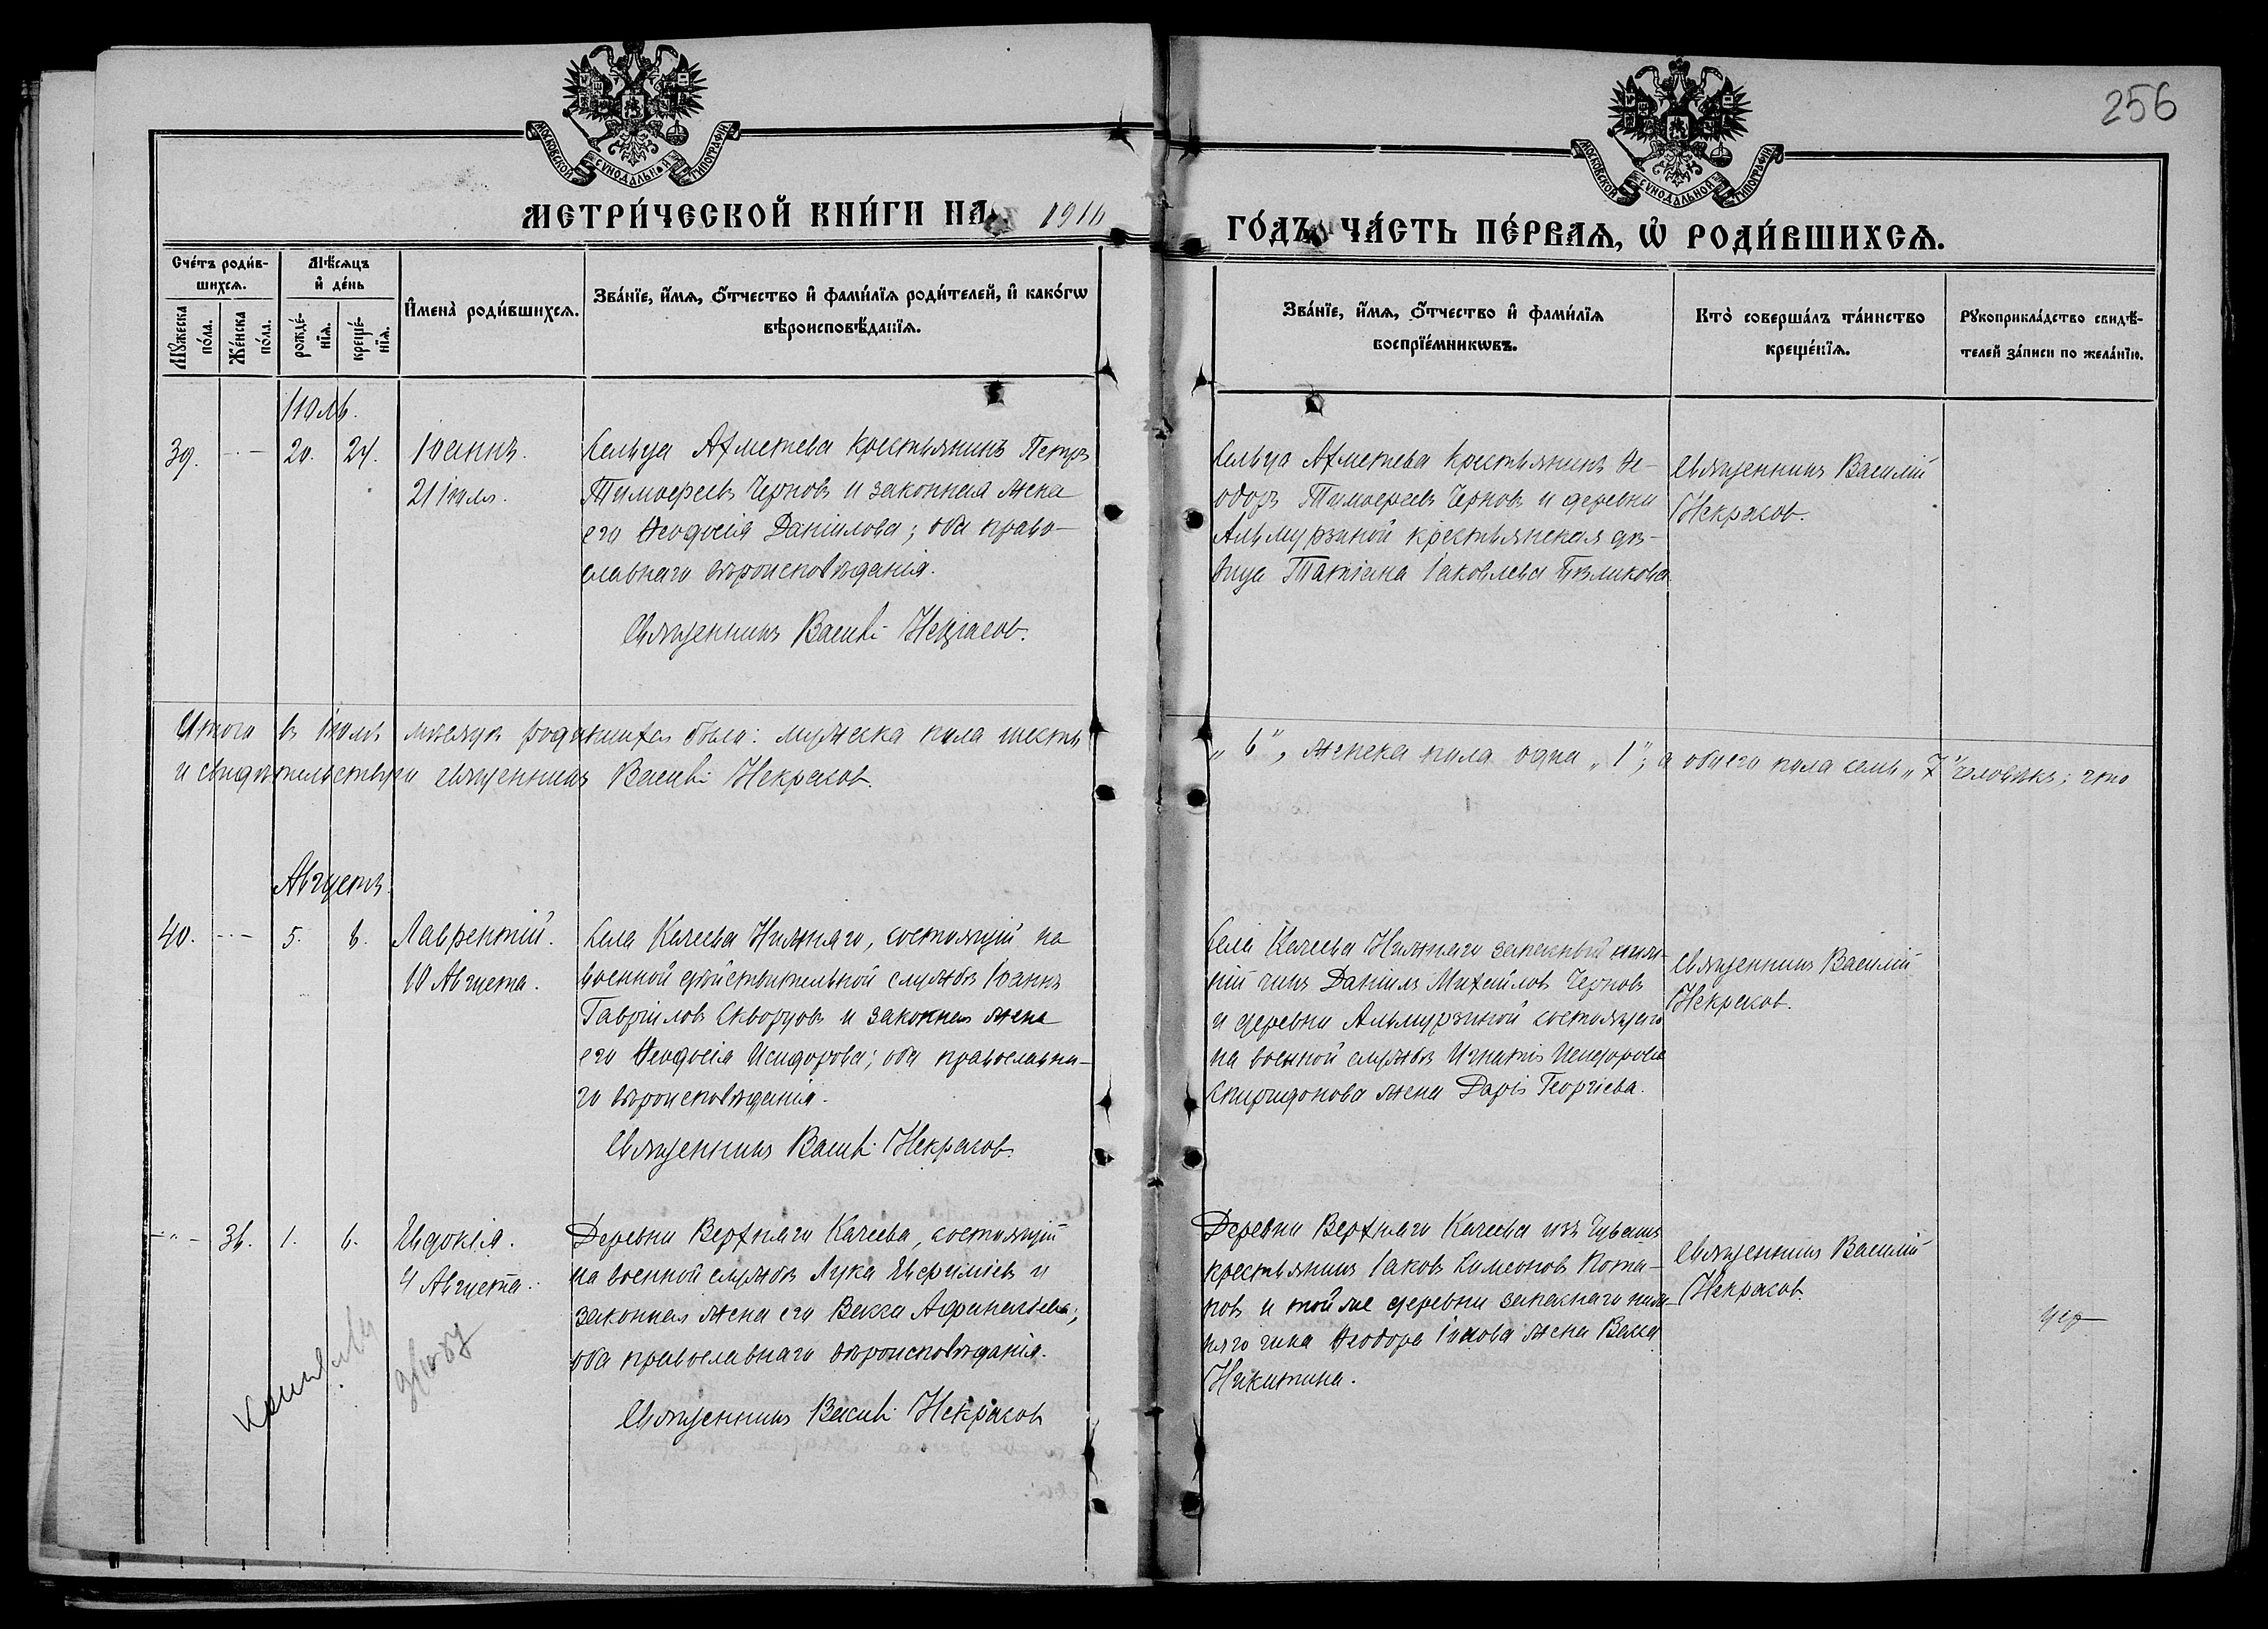 256
МОСКОВСКОЙ СѴНОДАЛЬНОЙ ТИПОГРАФІИ
МОСКОВСКОЙ СѴНОДАЛЬНОЙ ТИПОГРАФІИ
МЕТРИ́ЧЕСКОЙ КНИ́ГИ НА 1916 ГО́ДЪ, ЧА́СТЬ ПЕ́РВАѦ, Ѡ҆ РОДИ́ВШИХСѦ.
Сче́тъ роди́в-
шихсѧ.
Мꙋ́жеска по́ла.
Же́нска по́ла.
Мѣ́сѧцъ и҆ де́нь
рожде́-
нїѧ.
креще́-
нїѧ.
И҆мена̀ роди́вшихсѧ.
Зва́нїе, и҆́мѧ, ѻ҆́тчество и҆ фами́лїѧ роди́телей, и҆ како́гѡ
вѣроисповѣ́данїѧ.
Зва́нїе, и҆́мѧ, ѻ҆́тчество и҆ фами́лїѧ
воспрїе́мникѡвъ.
Кто̀ соверша́лъ та́инство
креще́нїѧ.
Рꙋкоприкла́дство свидѣ́-
телей за́писи по жела́нїю.
Іюль.
39.
20.
24.
Іоаннъ.
21 іюля.
Сельца Ахметева крестьянинъ Петръ
Тимоѳеевъ Черновъ и законная жена
его Ѳеодосія Даніилова; оба право-
славнаго вѣроисповѣданія.
Священникъ Василій Некрасовъ.
Сельца Ахметева крестьянинъ Ѳе-
одоръ Тимоѳеевъ Черновъ и деревни
Альмурзиной крестьянская дѣ-
вица Татіана Іаковлева Бѣликова
Священникъ Василій
Некрасовъ.
Итого въ іюлѣ мѣсяцѣ родившихся было: мужеска пола шесть „6", женска пола одна „1", а обоего пола семь „7" человѣкъ; что
и свидѣтельствую священникъ Василій Некрасовъ.
Августъ.
40.
5.
6.
Лаврентій.
10 Августа.
Села Качеева Нижняго, состоящій на
военной дѣйствительной службѣ Іоаннъ
Гавріиловъ Скворцовъ и законная жена
его Ѳеодосія Исидорова; оба православна-
го вѣроисповѣданія.
Священникъ Василій Некрасовъ.
Села Качеева Нижняго запасный ниж-
ній чинъ Даніилъ Михайловъ Черновъ
и деревни Альмурзиной состоящаго
на военной службѣ Игнатія
Спиридонова жена Дарія Георгіева.
Священникъ Василій
Некрасовъ.
36.
1.
6.
Евдокія.
4 Августа.
Деревни Верхняго Качеева, состоящій
на военной службѣ Лука Евѳиміевъ и
законная жена его Васса Аѳанасіева;
оба православнаго вѣроисповѣданія.
Священникъ Василій Некрасовъ
Деревни Верхняго Качеева изъ Чувашъ
крестьянинъ Іаковъ Симеоновъ Пота-
повъ и той же деревни запаснаго ниж-
няго чина Ѳеодора Іонова жена Васса
Никитина.
Священникъ Василій
Некрасовъ.